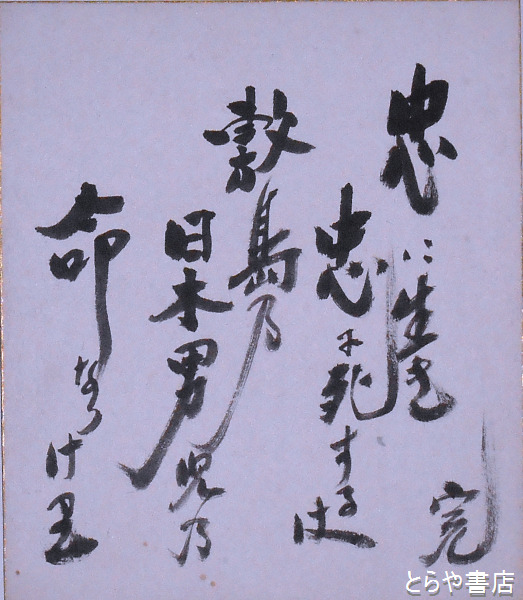 忠に生き
忠に死するは
敷島乃
日本男児乃
命なりけ里
とらや書店